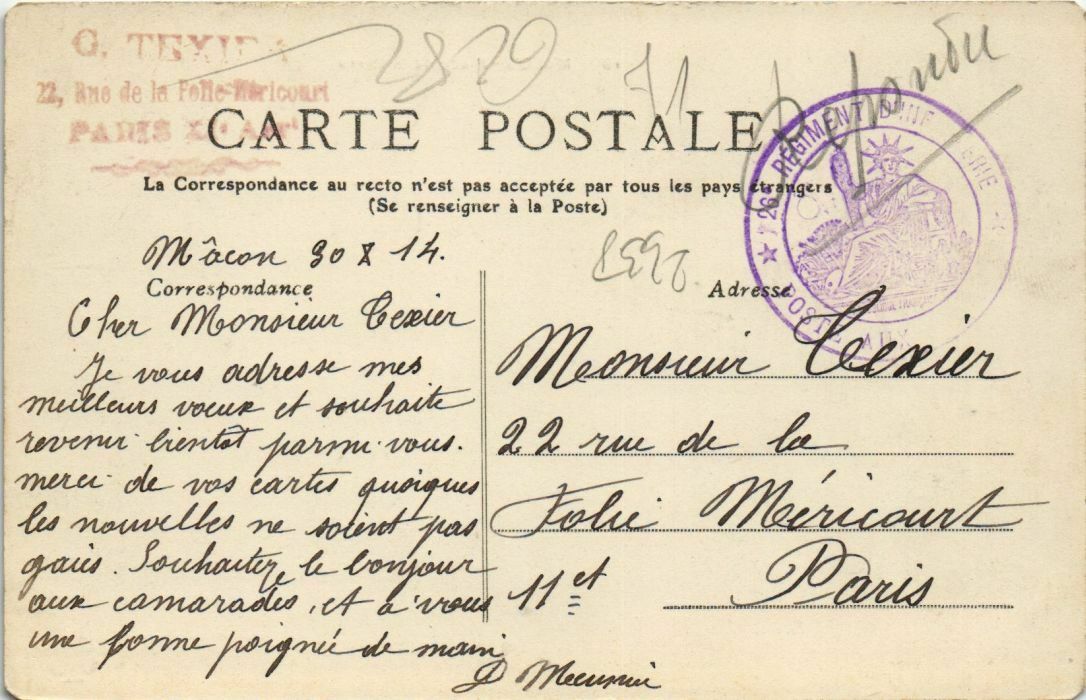 G. TEXIER
22, Rue de la Folie-Méricourt
PARIS XIe Arrt
2829
Répondu
CARTE POSTALE
La Correspondance au recto n'est pas acceptée par tous les pays étrangers
(Se renseigner à la Poste)
★ 126e RÉGIMENT D'INFANTERIE ★
POSTE AUX
Mâcon 30 X 14.
Correspondance
Cher Monsieur Texier
Je vous adresse mes
meilleurs voeux et souhaite
revenir bientôt parmi vous.
merci de vos cartes quoiques
les nouvelles ne soient pas
gaies. Souhaitez le bonjour
aux camarades, et à vous
une bonne poignée de main
Adresse
Monsieur Texier
22 rue de la
Folie Méricourt
11 et Paris